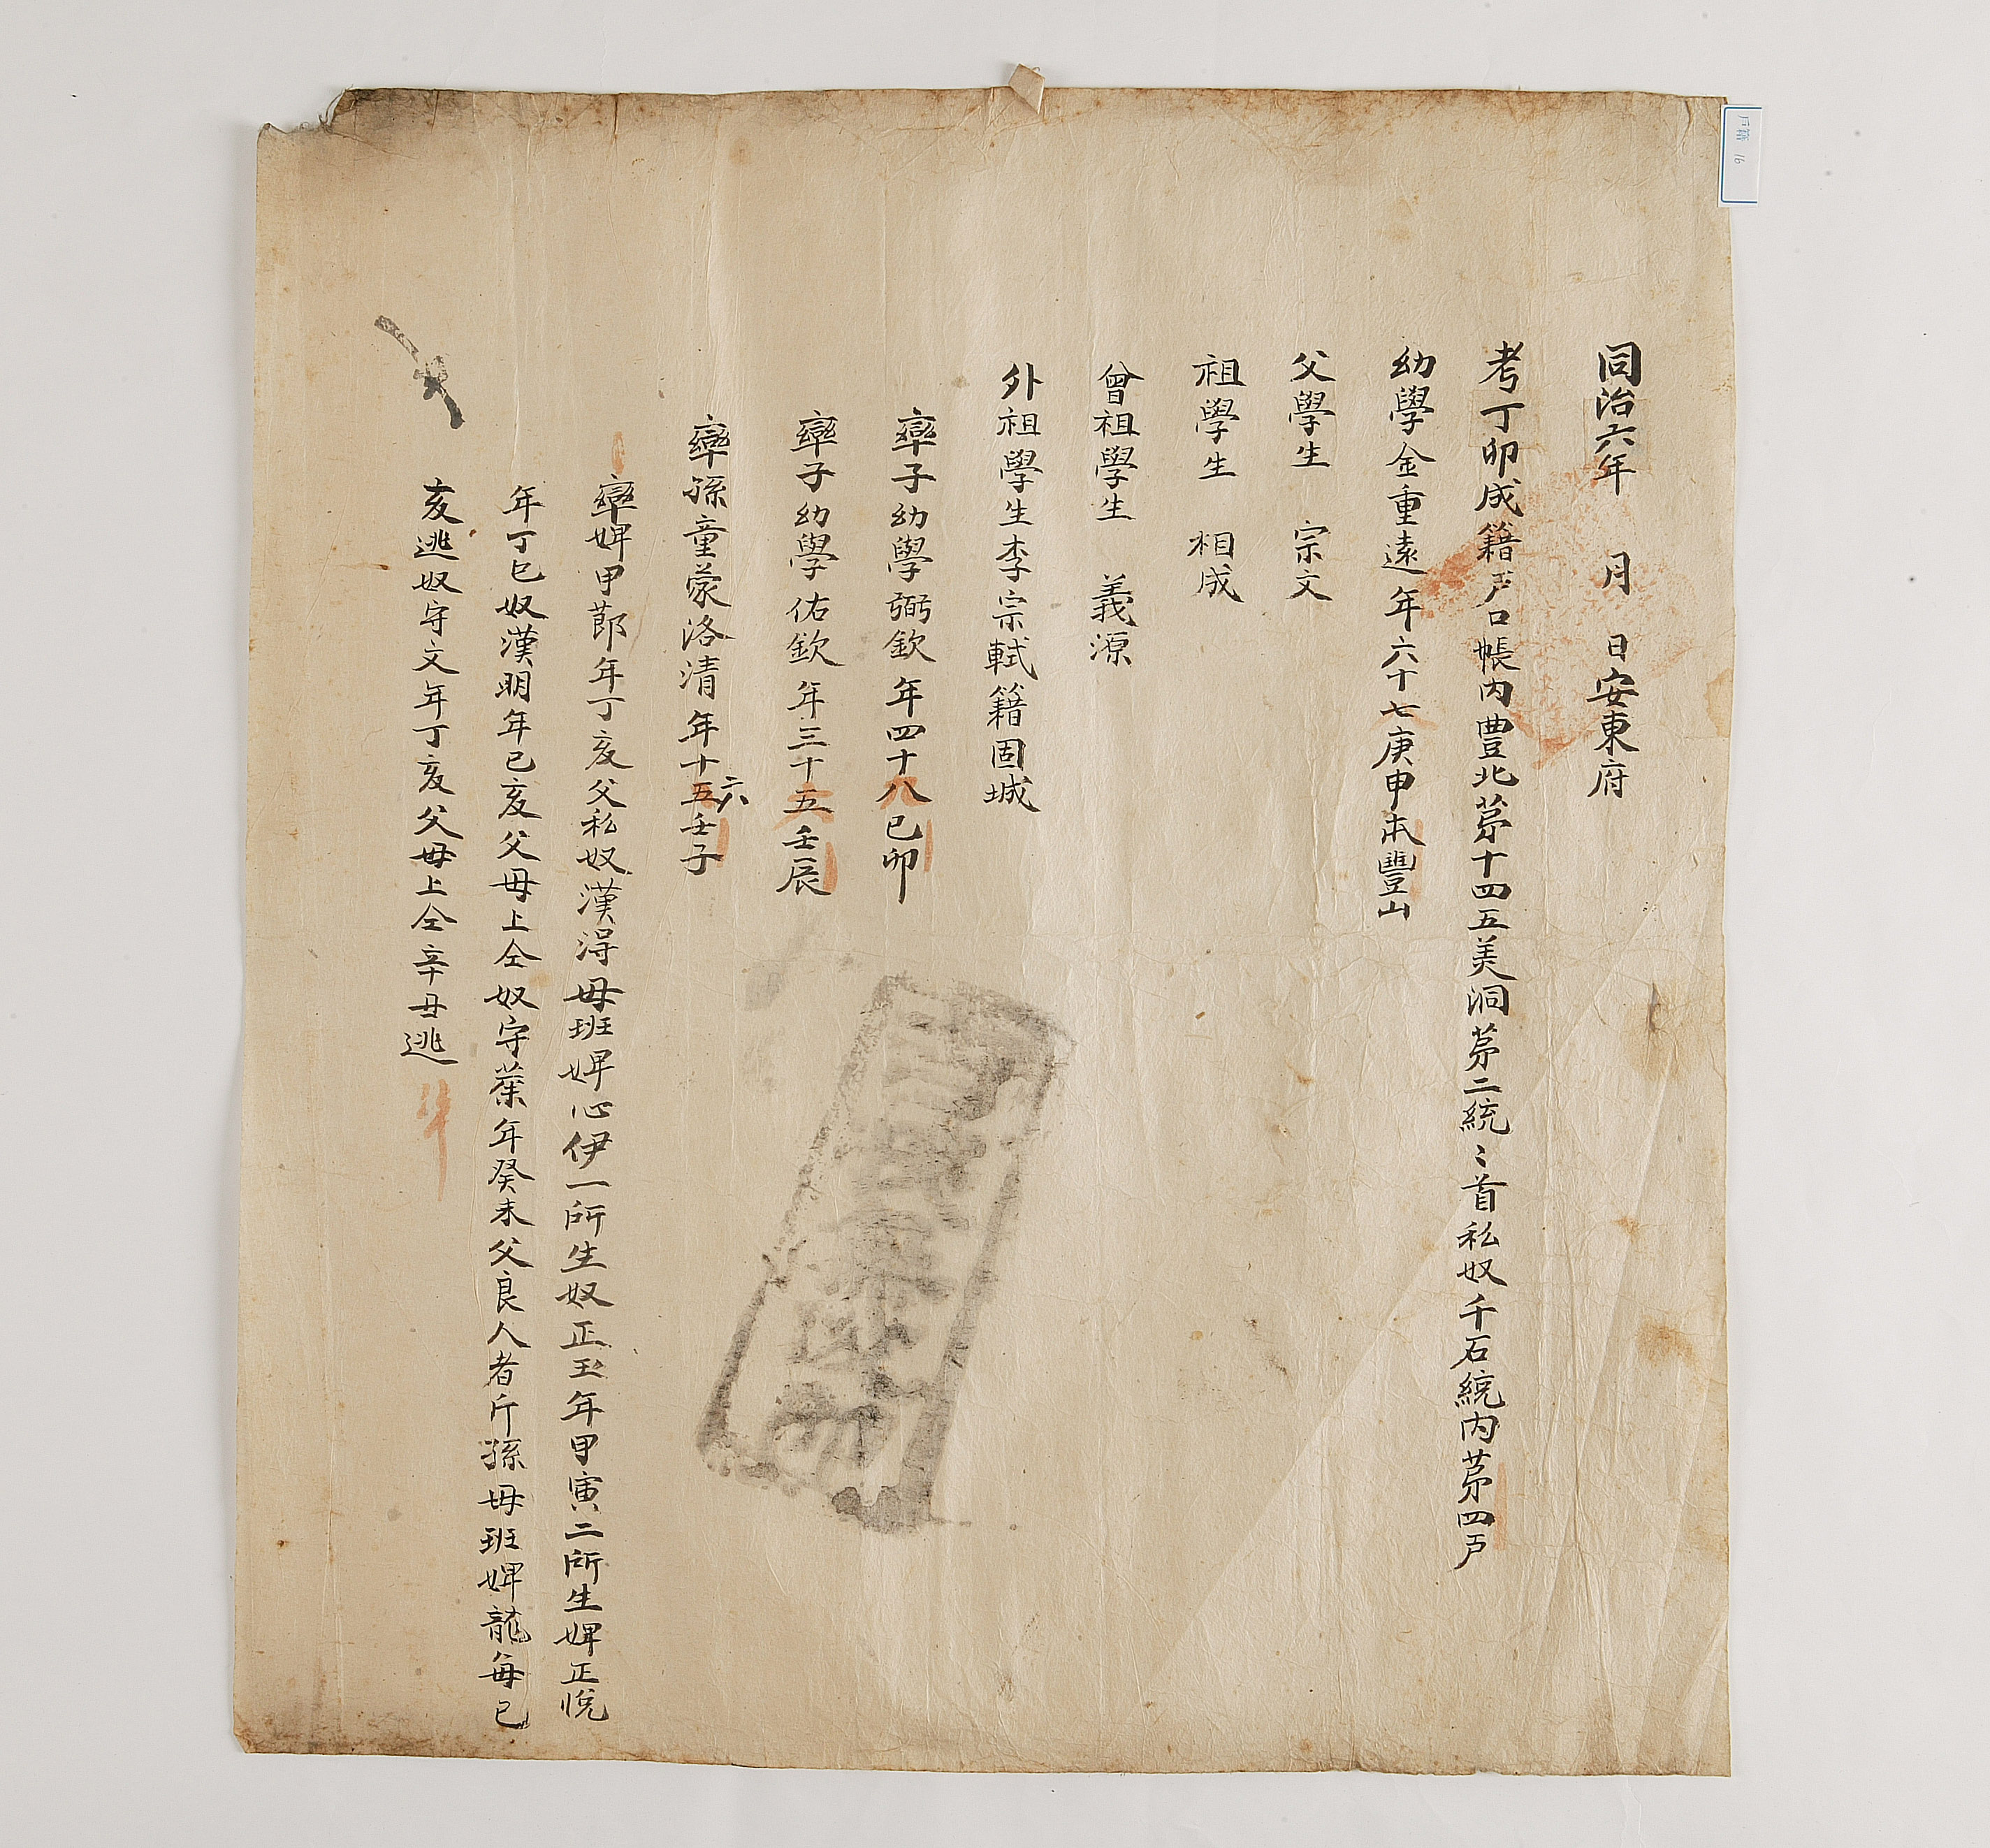 同治六年 月 日安東府
考丁卯成籍戶口帳內豊北苐十四五美洞苐二統〻首私奴千石統內苐四戶
幼學金重遠年六十七庚申本豐山
父學生 宗文
祖學生 相成
曾祖學生 義源
外祖學生李宗軾籍固城
率子幼學弼欽年四十八己卯
率子幼學佑欽年三十五壬辰
率孫童蒙洛清年十五六壬子
率婢甲莭年丁亥父私奴漢淂母班婢心伊一所生奴正玉年甲寅二所生婢正悅
年丁巳奴漢明年己亥父母上仝奴守葉年癸未父良人者斤孫母班婢龍每己
亥逃奴守文年丁亥父母上仝辛丑逃
戶籍 16